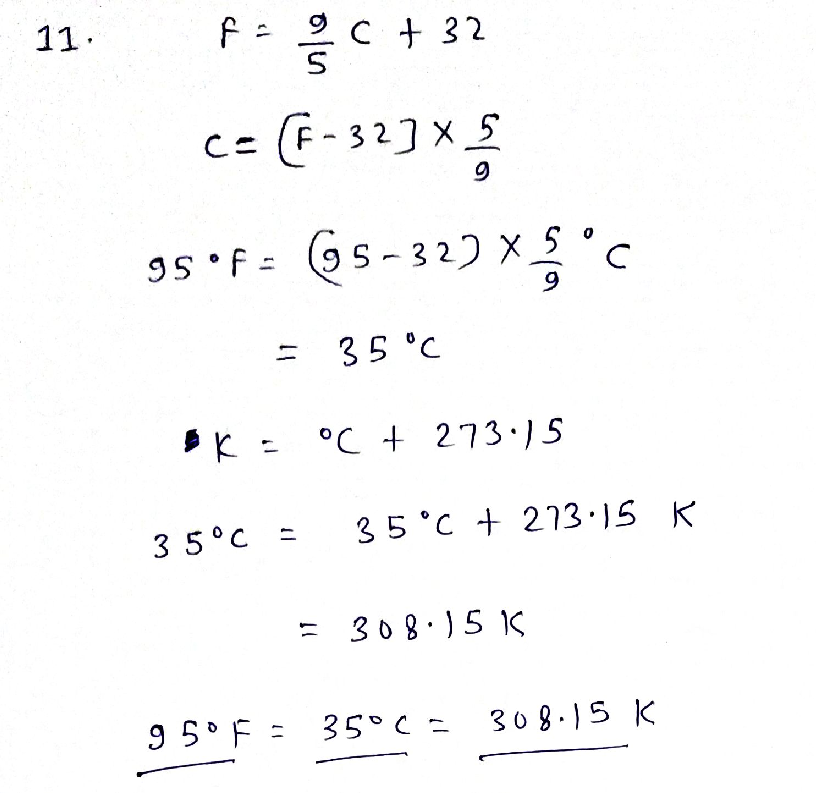 11. F = 9/5 C + 32
C = (F - 32] × 5/9
95°F = (95 - 32) × 5/9 °C
= 35 °C
K = °C + 273.15
35°C = 35°C + 273.15 K
= 308.15 K
95°F = 35°C = 308.15 K